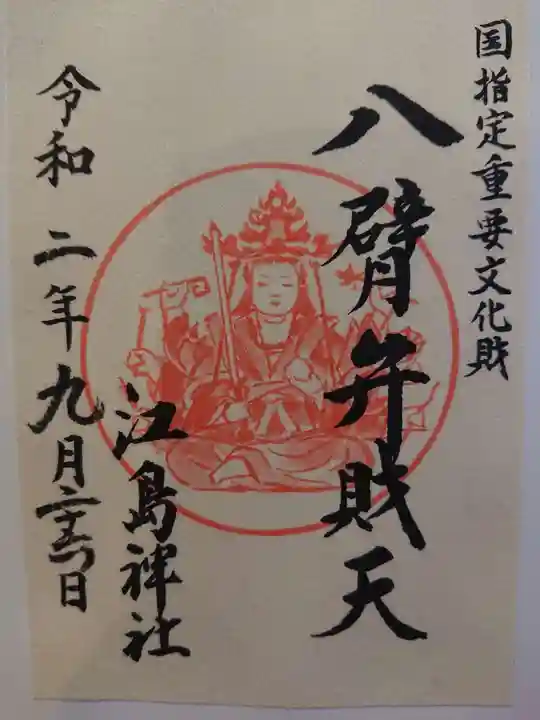 国指定重要文化財
八臂弁財天
江島神社
令和二年九月二十六日